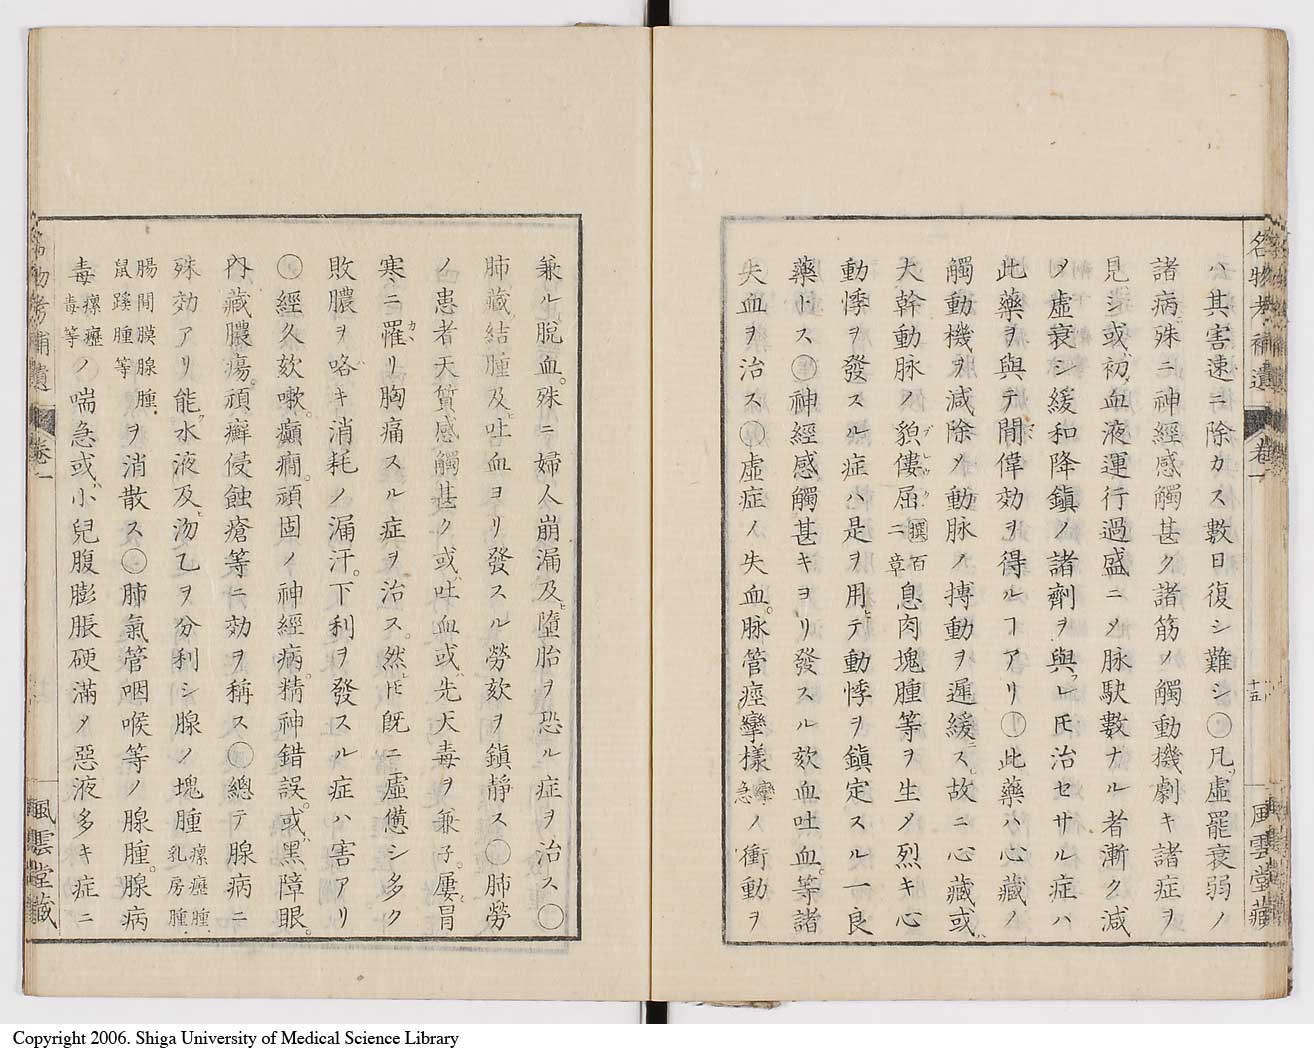 名物考補遺 卷一 十五 風雲堂藏
ハ其害速ニ除カス數日復シ難シ○凡虛罷衰弱ノ
諸病殊ニ神經感觸甚ク諸筋ノ觸動機劇キ諸症ヲ
見シ或初血液運行過盛ニメ脉駃數ナル者漸ク減
メ虛衰シ緩和降鎮ノ諸劑ヲ與レ𪜈治セサル症ハ
此藥ヲ與テ間偉効ヲ得ルヿアリ○此藥ハ心藏ノ
觸動機ヲ減除メ動脉ノ搏動ヲ遲緩ス故ニ心藏或
大幹動脉ノ貌僂屈二百章息肉塊腫等ヲ生メ烈キ心
動悸ヲ發スル症ハ是ヲ用テ動悸ヲ鎮定スル一良
藥トス○神經感觸甚キヨリ發スル欬血吐血等諸
失血ヲ治ス○虛症ノ失血脉管痙攣樣攣急ノ衝動ヲ
兼ル脫血殊ニ婦人崩漏及墮胎ヲ恐ル症ヲ治ス○
肺藏結腫及吐血ヨリ發スル勞欬ヲ鎮靜ス○肺勞
ノ患者天質感觸甚ク或吐血或先天毒ヲ兼子屢冒
寒ニ罹リ胸痛スル症ヲ治ス然𪜈既ニ虛憊シ多ク
敗膿ヲ咯キ消耗ノ漏汗下利ヲ發スル症ハ害アリ
○經久欬嗽癲癇頑固ノ神經病精神錯誤或黑障眼
內藏膿瘍頑癬侵蝕瘡等ニ効ヲ稱ス○總テ腺病ニ
殊効アリ能水液及沕乙ヲ分利シ腺ノ塊腫瘰癧腫乳房腫
腸間膜腺腫鼠蹊腫等ヲ消散ス○肺氣管咽喉等ノ腺腫腺病
毒瘰癧毒等ノ喘急或小兒腹膨脹硬滿メ惡液多キ症ニ
名物考補遺 卷一 風雲堂藏
Copyright 2006. Shiga University of Medical Science Library